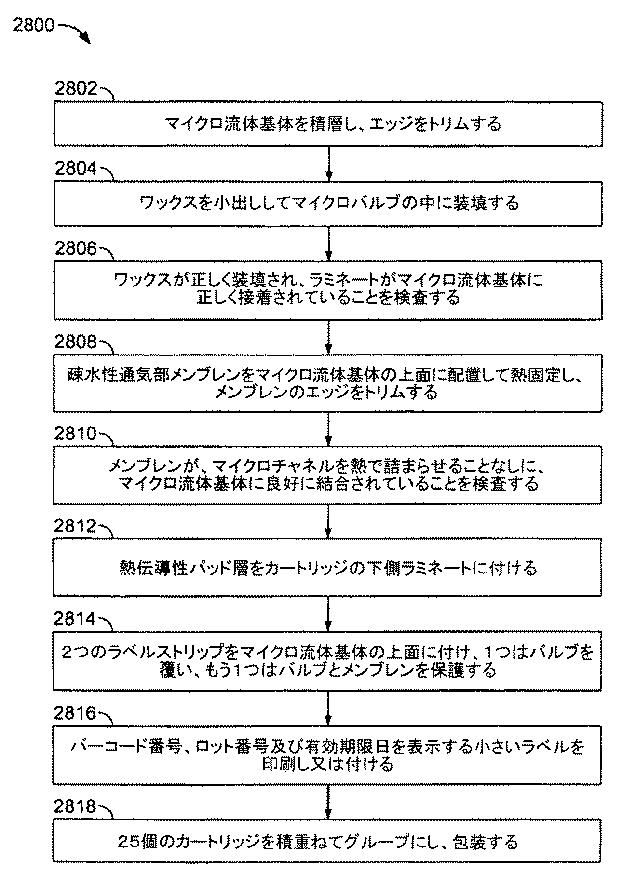 2800
2802
マイクロ流体基体を積層し、エッジをトリムする
2804
ワックスを小出ししてマイクロバルブの中に装填する
2806
ワックスが正しく装填され、ラミネートがマイクロ流体基体に
正しく接着されていることを検査する
2808
疎水性通気部メンブレンをマイクロ流体基体の上面に配置して熱固定し、
メンブレンのエッジをトリムする
2810
メンブレンが、マイクロチャネルを熱で詰まらせることなしに、
マイクロ流体基体に良好に結合されていることを検査する
2812
熱伝導性パッド層をカートリッジの下側ラミネートに付ける
2814
2つのラベルストリップをマイクロ流体基体の上面に付け、1つはバルブを
覆い、もう1つはバルブとメンブレンを保護する
2816
バーコード番号、ロット番号及び有効期限日を表示する小さいラベルを
印刷し又は付ける
2818
25個のカートリッジを積重ねてグループにし、包装する